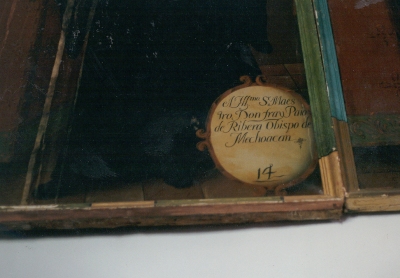 el Yllmo Sr. Maes
tro, Don fray
de Ribera Obispo de
Mechoacan
14